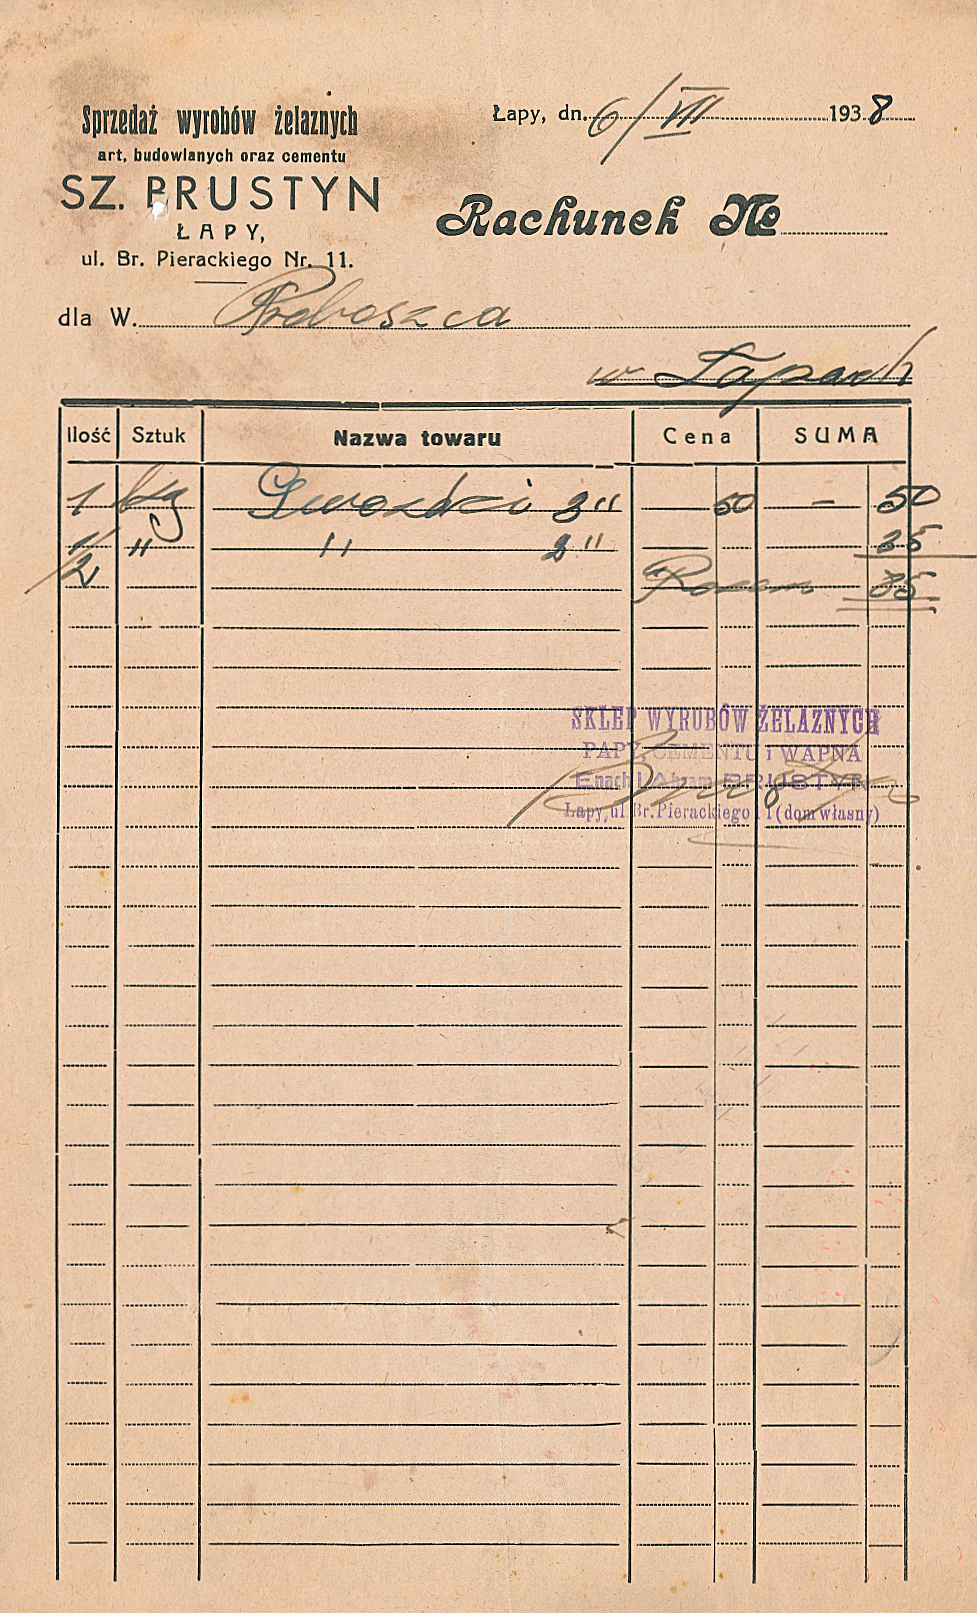 Sprzedaż wyrobów żelaznych
art. budowlanych oraz cementu
SZ. BRUSTYN
ŁAPY,
ul. Br. Pierackiego Nr. 11.
Łapy, dn. 6/VII 1938
Rachunek №
dla W. Proboszca
w Łapach
Ilość Sztuk Nazwa towaru Cena SUMA
1 kg Gwozdzi 3" 50 - 50
1/2 " " 2" 35
Razem 85
SKLEP WYROBÓW ŻELAZNYCH
PAPY, CEMENTU i WAPNA
Enach i Abram BRUSTYN
Łapy, ul. Br. Pierackiego 11 (dom własny)